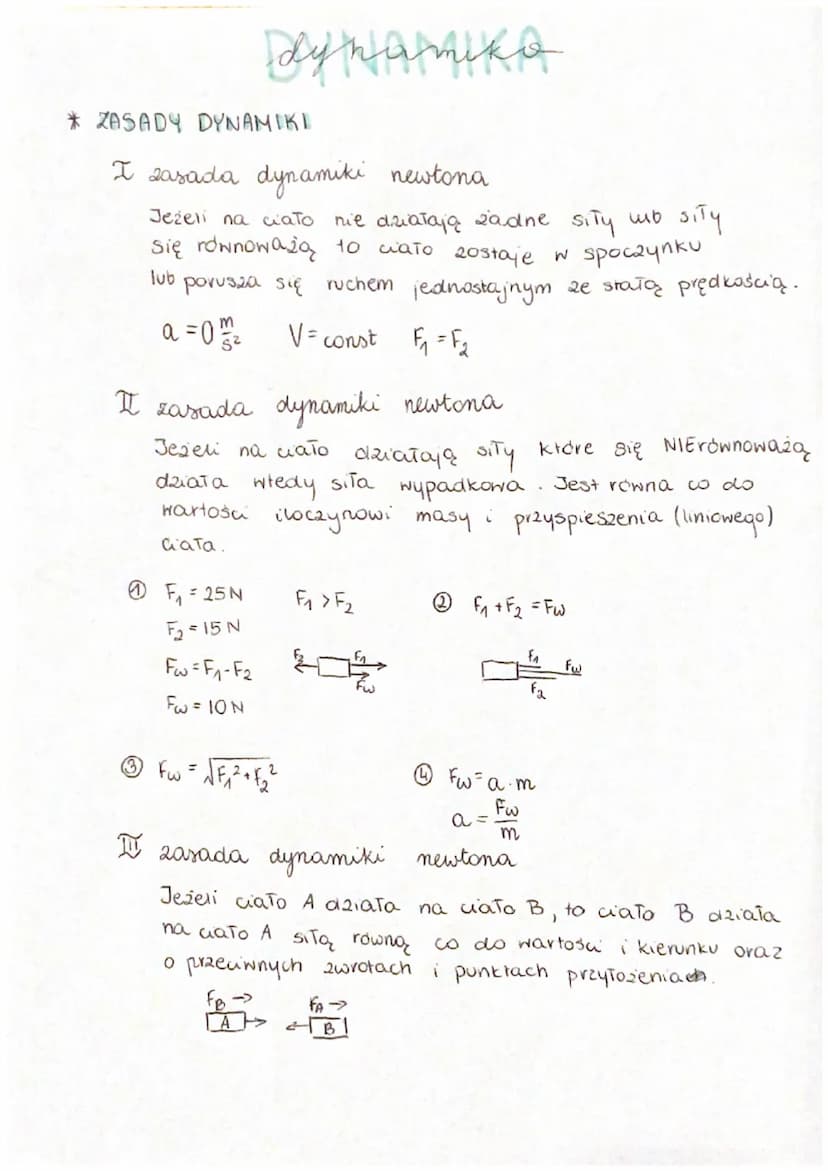 DYNAMIKA
dynamika
* ZASADY DYNAMIKI
I zasada dynamiki newtona
Jeżeli na ciało nie działają żadne siły lub siły
się równoważą to ciało zostaje w spoczynku
lub porusza się ruchem jednostajnym ze stałą prędkością.
a = 0 m/s² V = const F₁ = F₂
II zasada dynamiki newtona
Jeżeli na ciało działają siły które się NIErównoważą
działa wtedy siła wypadkowa. Jest równa co do
wartości iloczynowi masy i przyspieszenia (liniowego)
ciała.
① F₁ = 25 N F₁ > F₂ ② F₁ + F₂ = Fw
F₂ = 15 N
Fw = F₁ - F₂ F₂ F₁ Fw F₁ Fw F₂
Fw = 10 N
③ Fw = √F₁² + F₂² ④ Fw = a · m
a = Fw/m
III zasada dynamiki newtona
Jeżeli ciało A działa na ciało B, to ciało B działa
na ciało A siłą równą co do wartości i kierunku oraz
o przeciwnych zwrotach i punktach przyłożenia.
FB → FA →
A B